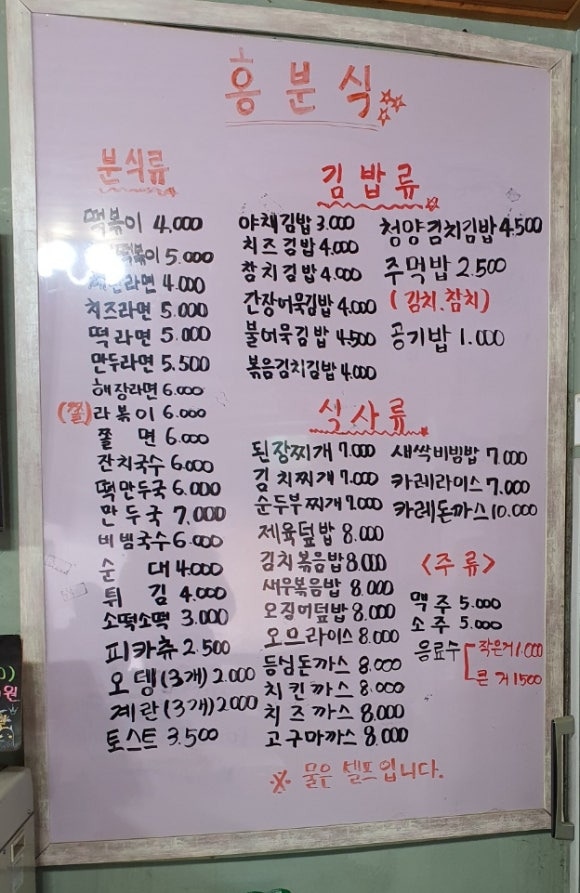 흥분식
분식류
떡볶이 4.000
떡볶이 5.000
라면 4.000
치즈라면 5.000
떡라면 5.000
만두라면 5.500
해장라면 6.000
(쫄)라볶이 6.000
쫄 면 6.000
잔치국수 6.000
떡만두국 6.000
만두국 7.000
비빔국수 6.000
순 대 4.000
튀 김 4.000
소떡소떡 3.000
피카츄 2.500
오뎅(3개) 2.000
계란(3개) 2000
토스트 3.500
김밥류
야채김밥 3.000
치즈김밥 4.000
참치김밥 4.000
간장어묵김밥 4.000
불어묵김밥 4.500
볶음김치김밥 4.000
청양김치김밥 4.500
주먹밥 2.500
(김치.참치)
공기밥 1.000
식사류
된장찌개 7.000
김치찌개 7.000
순두부찌개 7.000
제육덮밥 8.000
김치볶음밥 8.000
새우볶음밥 8.000
오징어덮밥 8.000
오므라이스 8.000
등심돈까스 8.000
치킨까스 8.000
치즈까스 8.000
고구마까스 8.000
새싹비빔밥 7.000
카레라이스 7.000
카레돈까스 10.000
<주류>
맥주 5.000
소주 5.000
음료수 작은거 1.000
큰거 1500
※ 물은 셀프입니다.
원